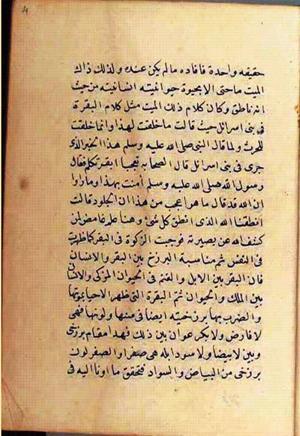 حقيقه واحدة فافاده مالم يكن عنده ولذلك ذاك
الميت ماحتى الا بحيوة حيوانيته انسانيته من حيث
انه ناطق وكان كلام ذلك الميت مثل كلام البقرة
فى بنى اسرائل حيث قالت ما خلقت لهذا وانما خلقت
للحرث ولما قال النبى صلى الله عليه وسلم هذا الخبر الذى
جرى فى بنى اسرائل قال الصحابة تعجبا ابقرة تكلم فقال
رسول الله صلى الله عليه وسلم آمنت بهذا وما راوا
ان الله قد قال ما هو اعجب من هذا ان الجلود قالت
انطقنا الله الذى انطق كل شئ وهنا علم غامض لمن
كشف الله عن بصيرته فوجبت الزكوة فى البقر كما ظهرت
فى النفس ثم مناسبة البرزخ بين البقر والانسان
فان البقر بين الابل والغنم فى الحيوان المزكى والانسان
بين الملك والحيوان ثم البقرة التى ظهر الاحيا بموتها
والضرب بها برزخية ايضا فى سنها ولونها فهى
لا فارض ولا بكر عوان بين ذلك فهذا مقام برزخى
وبين لا بيضا ولا سودا بل هى صفرا والصفر لون
برزخى من البياض والسواد فتحقق ما اومأنا اليه فى